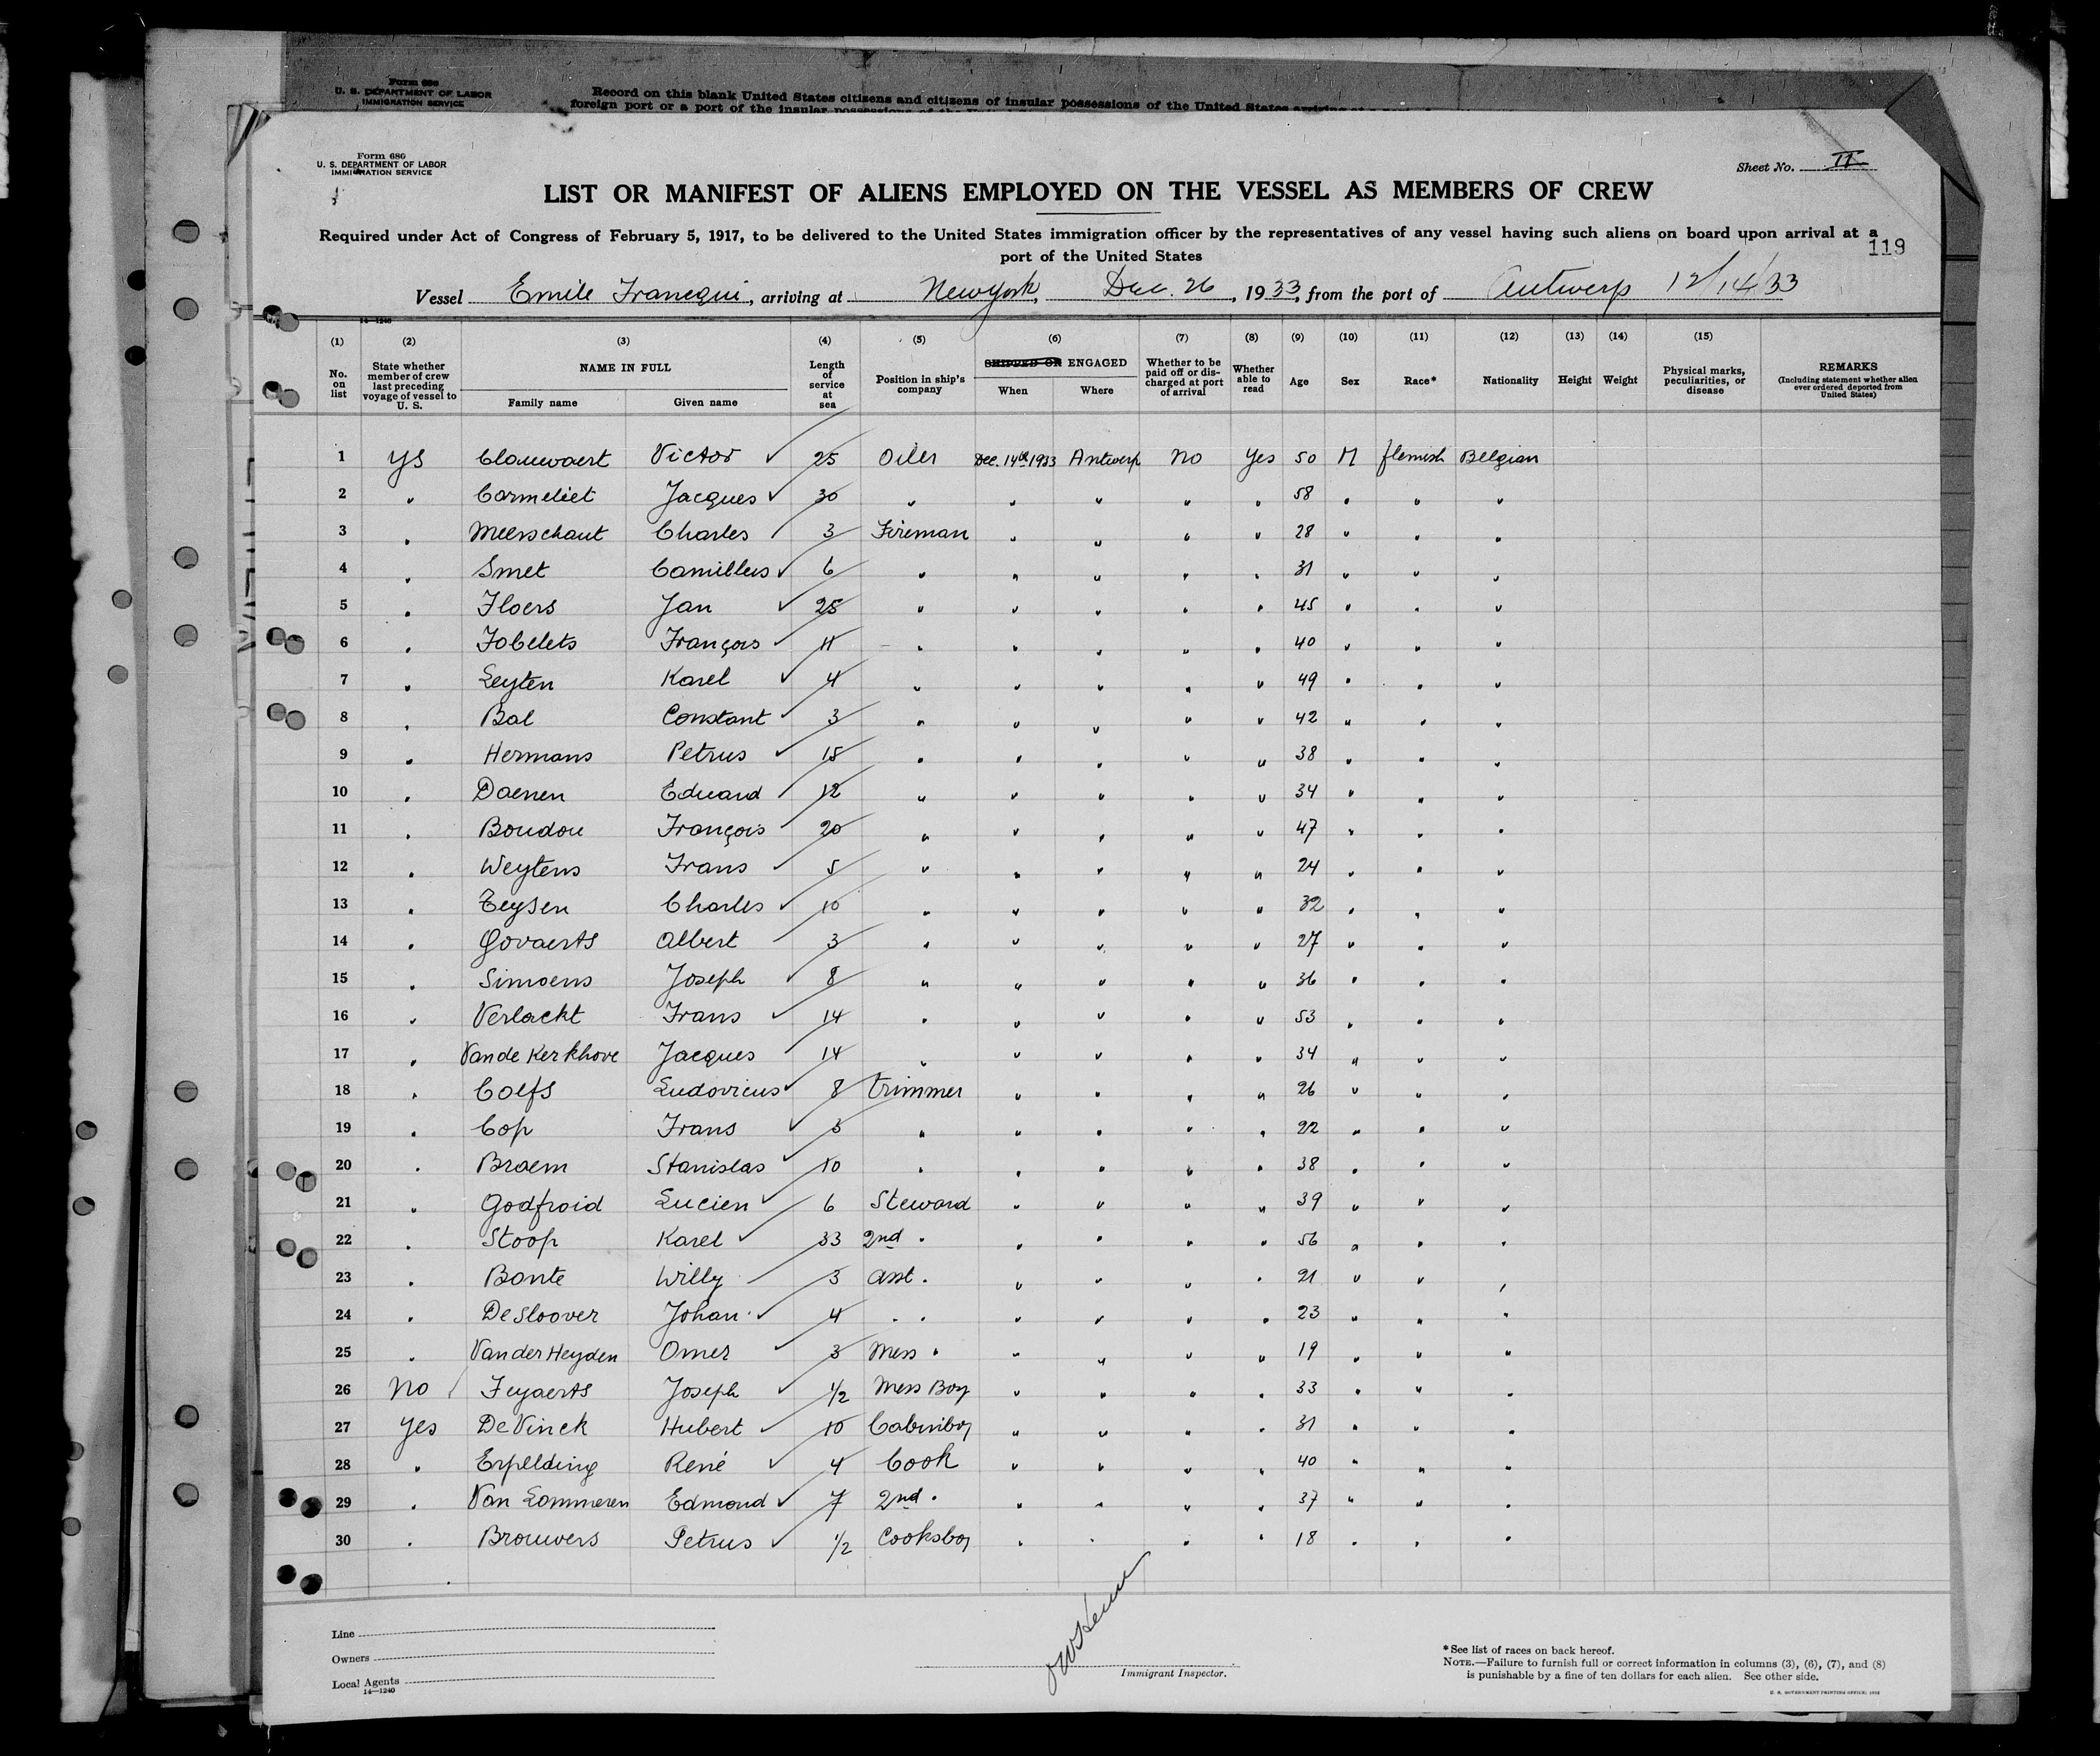 Form 680
U. S. DEPARTMENT OF LABOR
IMMIGRATION SERVICE
Record on this blank United States citizens and citizens of insular possessions of the United States arriving
foreign port or a port of the insular possessions of the United States
Form 680
U. S. DEPARTMENT OF LABOR
IMMIGRATION SERVICE
Sheet No. II
LIST OR MANIFEST OF ALIENS EMPLOYED ON THE VESSEL AS MEMBERS OF CREW
Required under Act of Congress of February 5, 1917, to be delivered to the United States immigration officer by the representatives of any vessel having such aliens on board upon arrival at a
port of the United States
119
Vessel Emile Francqui, arriving at New York, Dec. 26, 1933, from the port of Antwerp 12/14/33
14—1240
(1) (2) (3) (4) (5) (6) (7) (8) (9) (10) (11) (12) (13) (14) (15)
No. on list State whether member of crew last preceding voyage of vessel to U. S. NAME IN FULL Family name Given name Length of service at sea Position in ship's company SHIPPED OR ENGAGED When Where Whether to be paid off or discharged at port of arrival Whether able to read Age Sex Race* Nationality Height Weight Physical marks, peculiarities, or disease REMARKS (Including statement whether alien ever ordered deported from United States)
1 ys Clauwaert Victor ✓ 25 Oiler Dec. 14th 1933 Antwerp No Yes 50 M flemish Belgian
2 " Carmeliet Jacques ✓ 30 " " " " " 58 " " "
3 " Meerschaut Charles 3 Fireman " " " " 28 " " "
4 " Smet Camillus ✓ 6 " " " " " 31 " " "
5 " Floers Jan ✓ 25 " " " " " 45 " " "
6 " Fobelets François ✓ 11 " " " " " 40 " " "
7 " Leyten Karel ✓ 4 " " " " " 49 " " "
8 " Bal Constant ✓ 3 " " " " " 42 " " "
9 " Hermans Petrus ✓ 15 " " " " " 38 " " "
10 " Daenen Eduard ✓ 12 " " " " " 34 " " "
11 " Boudou François ✓ 20 " " " " " 47 " " "
12 " Weytens Frans ✓ 5 " " " " " 24 " " "
13 " Teysen Charles ✓ 10 " " " " " 32 " " "
14 " Govaerts Albert ✓ 3 " " " " " 27 " " "
15 " Simoens Joseph ✓ 8 " " " " " 36 " " "
16 " Verlackt Frans ✓ 14 " " " " " 53 " " "
17 " Van de Kerkhove Jacques ✓ 14 " " " " " 34 " " "
18 " Colfs Ludovicus ✓ 8 Trimmer " " " " 26 " " "
19 " Cop Frans ✓ 3 " " " " " 22 " " "
20 " Braem Stanislas ✓ 10 " " " " " 38 " " "
21 " Godfroid Lucien ✓ 6 Steward " " " " 39 " " "
22 " Stoop Karel ✓ 33 2nd " " " " " 56 " " "
23 " Bonte Willy 3 asst. " " " " 21 " " "
24 " De Sloover Johan ✓ 4 " " " " " " 23 " " "
25 " Van der Heyden Omer ✓ 3 Mess " " " " " 19 " " "
26 No Feyaerts Joseph ✓ 1/2 Mess Boy " " " " 33 " " "
27 Yes De Vinck Hubert ✓ 10 Cabinboy " " " " 31 " " "
28 " Erpelding René ✓ 4 Cook " " " " 40 " " "
29 " Van Lommeren Edmond ✓ 7 2nd " " " " " 37 " " "
30 " Brouwers Petrus ✓ 1/2 Cooksboy " " " " 18 " " "
Line
Owners
Local Agents
14—1240
Immigrant Inspector.
*See list of races on back hereof.
NOTE.—Failure to furnish full or correct information in columns (3), (6), (7), and (8)
is punishable by a fine of ten dollars for each alien. See other side.
U. S. GOVERNMENT PRINTING OFFICE: 1932